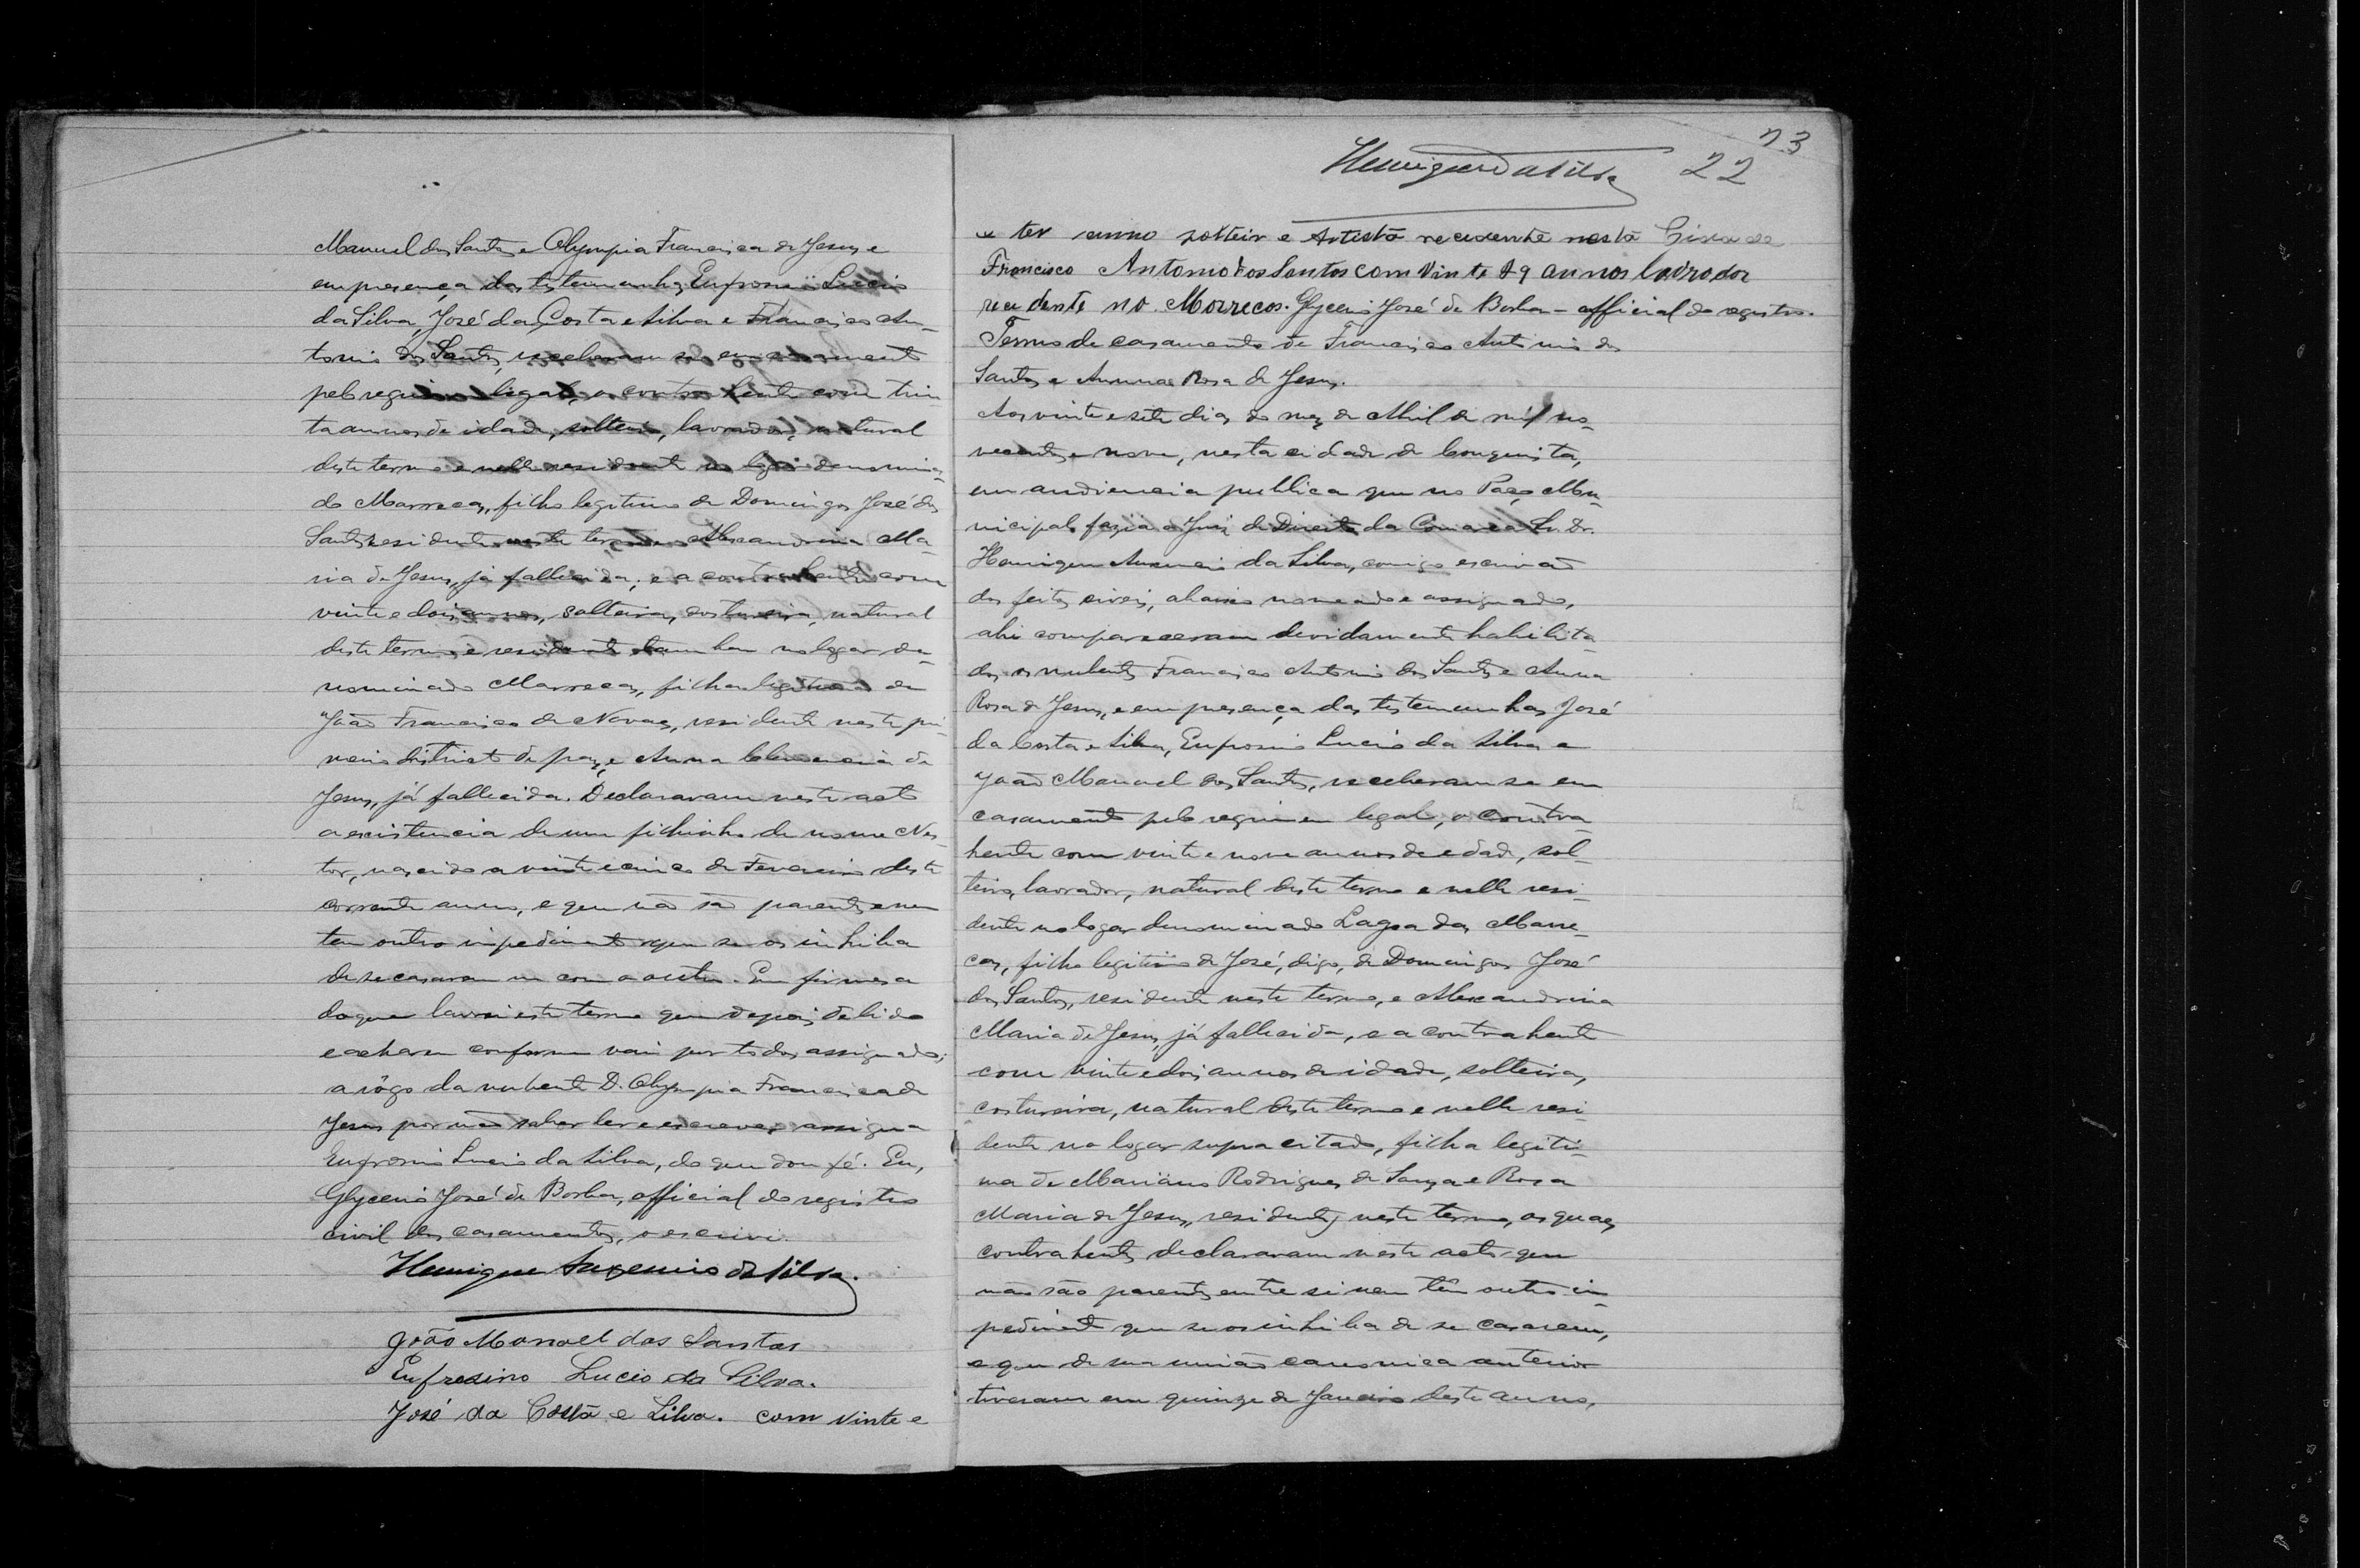 Manuel dos Santos e Olympia Francisca de Jesus e
em presença das testemunhas Eufrosino Lucio
da Silva, José da Costa e Silva e Francisco An-
tonio dos Santos, receberam se em casamento
pelo regimen legal, o contrahente com trin-
ta annos de idade, solteiro, lavrador, natural
deste termo e nelle residente no logar denomina-
do Marrecas, filho legitimo de Domingos José dos
Santos residente neste termo e Alexandrina Ma-
ria de Jesus, já fallecida; e a contrahente com
vinte e dois annos, solteira, costureira, natural
deste termo e residente tambem no logar de-
nominado Marrecas, filha legitima de
João Francisco de Novaes, residente neste pri-
meiro districto de paz, e Anna Clemencia de
Jesus, já fallecida. Declararam neste acto
a existencia de um filhinho de nome Nes-
tor, nascido a vinte e cinco de Fevereiro deste
corrente anno, e que não são parentes e nem
tem outro impedimento que se os inhiba
de se casarem um com o outro. Em firmesa
do que lavrei este termo que depois de lido
e acharem conforme vai por todos assignado;
a rôgo da nubente D. Olympia Francisca de
Jesus por não saber ler e escrever assigna
Eufrosino Lucio da Silva, do que dou fé. Eu,
Glycerio José de Borba, official do registro
civil dos casamentos, o escrivi.
Henrique Auxencio da Silva.
João Manoel dos Santos
Eufresino Lucio da Silva.
José da Costa e Silva. com vinte e
73
Henrique da Silva 22
e ter anno solteir e Artista recedente nesta Cidade
Francisco Antonio dos Santos com Vinte 29 annos lavrador
recedente no Morrecos. Glycerio José de Borba - official do registro.
Termo de casamento de Francisco Antonio dos
Santos e Anna Rosa de Jesus.
Aos vinte e sete dias do mez de Abril de mil no-
vecentos e nove, nesta cidade de Conquista,
em audiencia publica que no Paço Mu-
nicipal fazia o Juiz de Direito da Comarca Sr. Dr.
Henrique Auxencio da Silva, comigo escrivão
dos feitos civeis, abaixo nomeado e assignado,
ahi compareceram devidamente habilita-
dos os nubentes Francisco Antonio dos Santos e Anna
Rosa de Jesus, e em presença das testemunhas José
da Costa e Silva, Eufrosino Lucio da Silva e
João Manoel dos Santos, receberam se em
casamento pelo regimen legal, o contra-
hente com vinte e nove annos de edade, sol-
teiro, lavrador, natural deste termo e nelle resi-
dente no logar denominado Lagoa das Marre-
cas, filho legitimo de José, digo, de Domingos José
dos Santos, residente neste termo, e Alexandrina
Maria de Jesus, já fallecida, e a contrahente
com vinte e dois annos de idade, solteira,
costureira, natural deste termo e nelle resi-
dente no logar supra citado, filha legiti-
ma de Mariano Rodrigues de Souza e Rosa
Maria de Jesus, residentes neste termo, os quaes
contrahentes declararam neste acto que
não são parentes entre si nem têm outro im-
pedimento que se os inhiba de se casarem,
e que de sua união canonica anterior
tiveram em quinze de Janeiro deste anno,